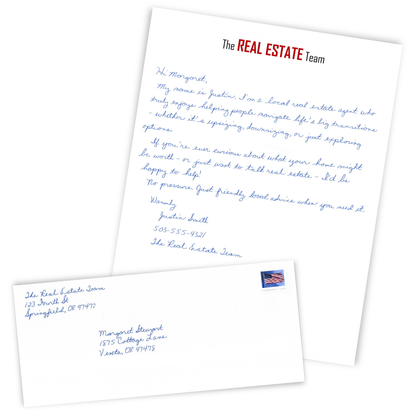 The REAL ESTATE Team
Hi Margaret,
My name is Justin. I'm a local real estate agent who
truly enjoys helping people navigate life's big transitions
- whether it's upsizing, downsizing, or just exploring
options.
If you're ever curious about what your home might
be worth - or just want to talk real estate - I'd be
happy to help!
No pressure. Just friendly local advice when you need it.
Warmly
Justin Smith
503-555-4321
The Real Estate Team
The Real Estate Team
123 Fourth St
Springfield, OR 97477
Margaret Stewart
1875 Cottage Lane
Veneta, OR 97478